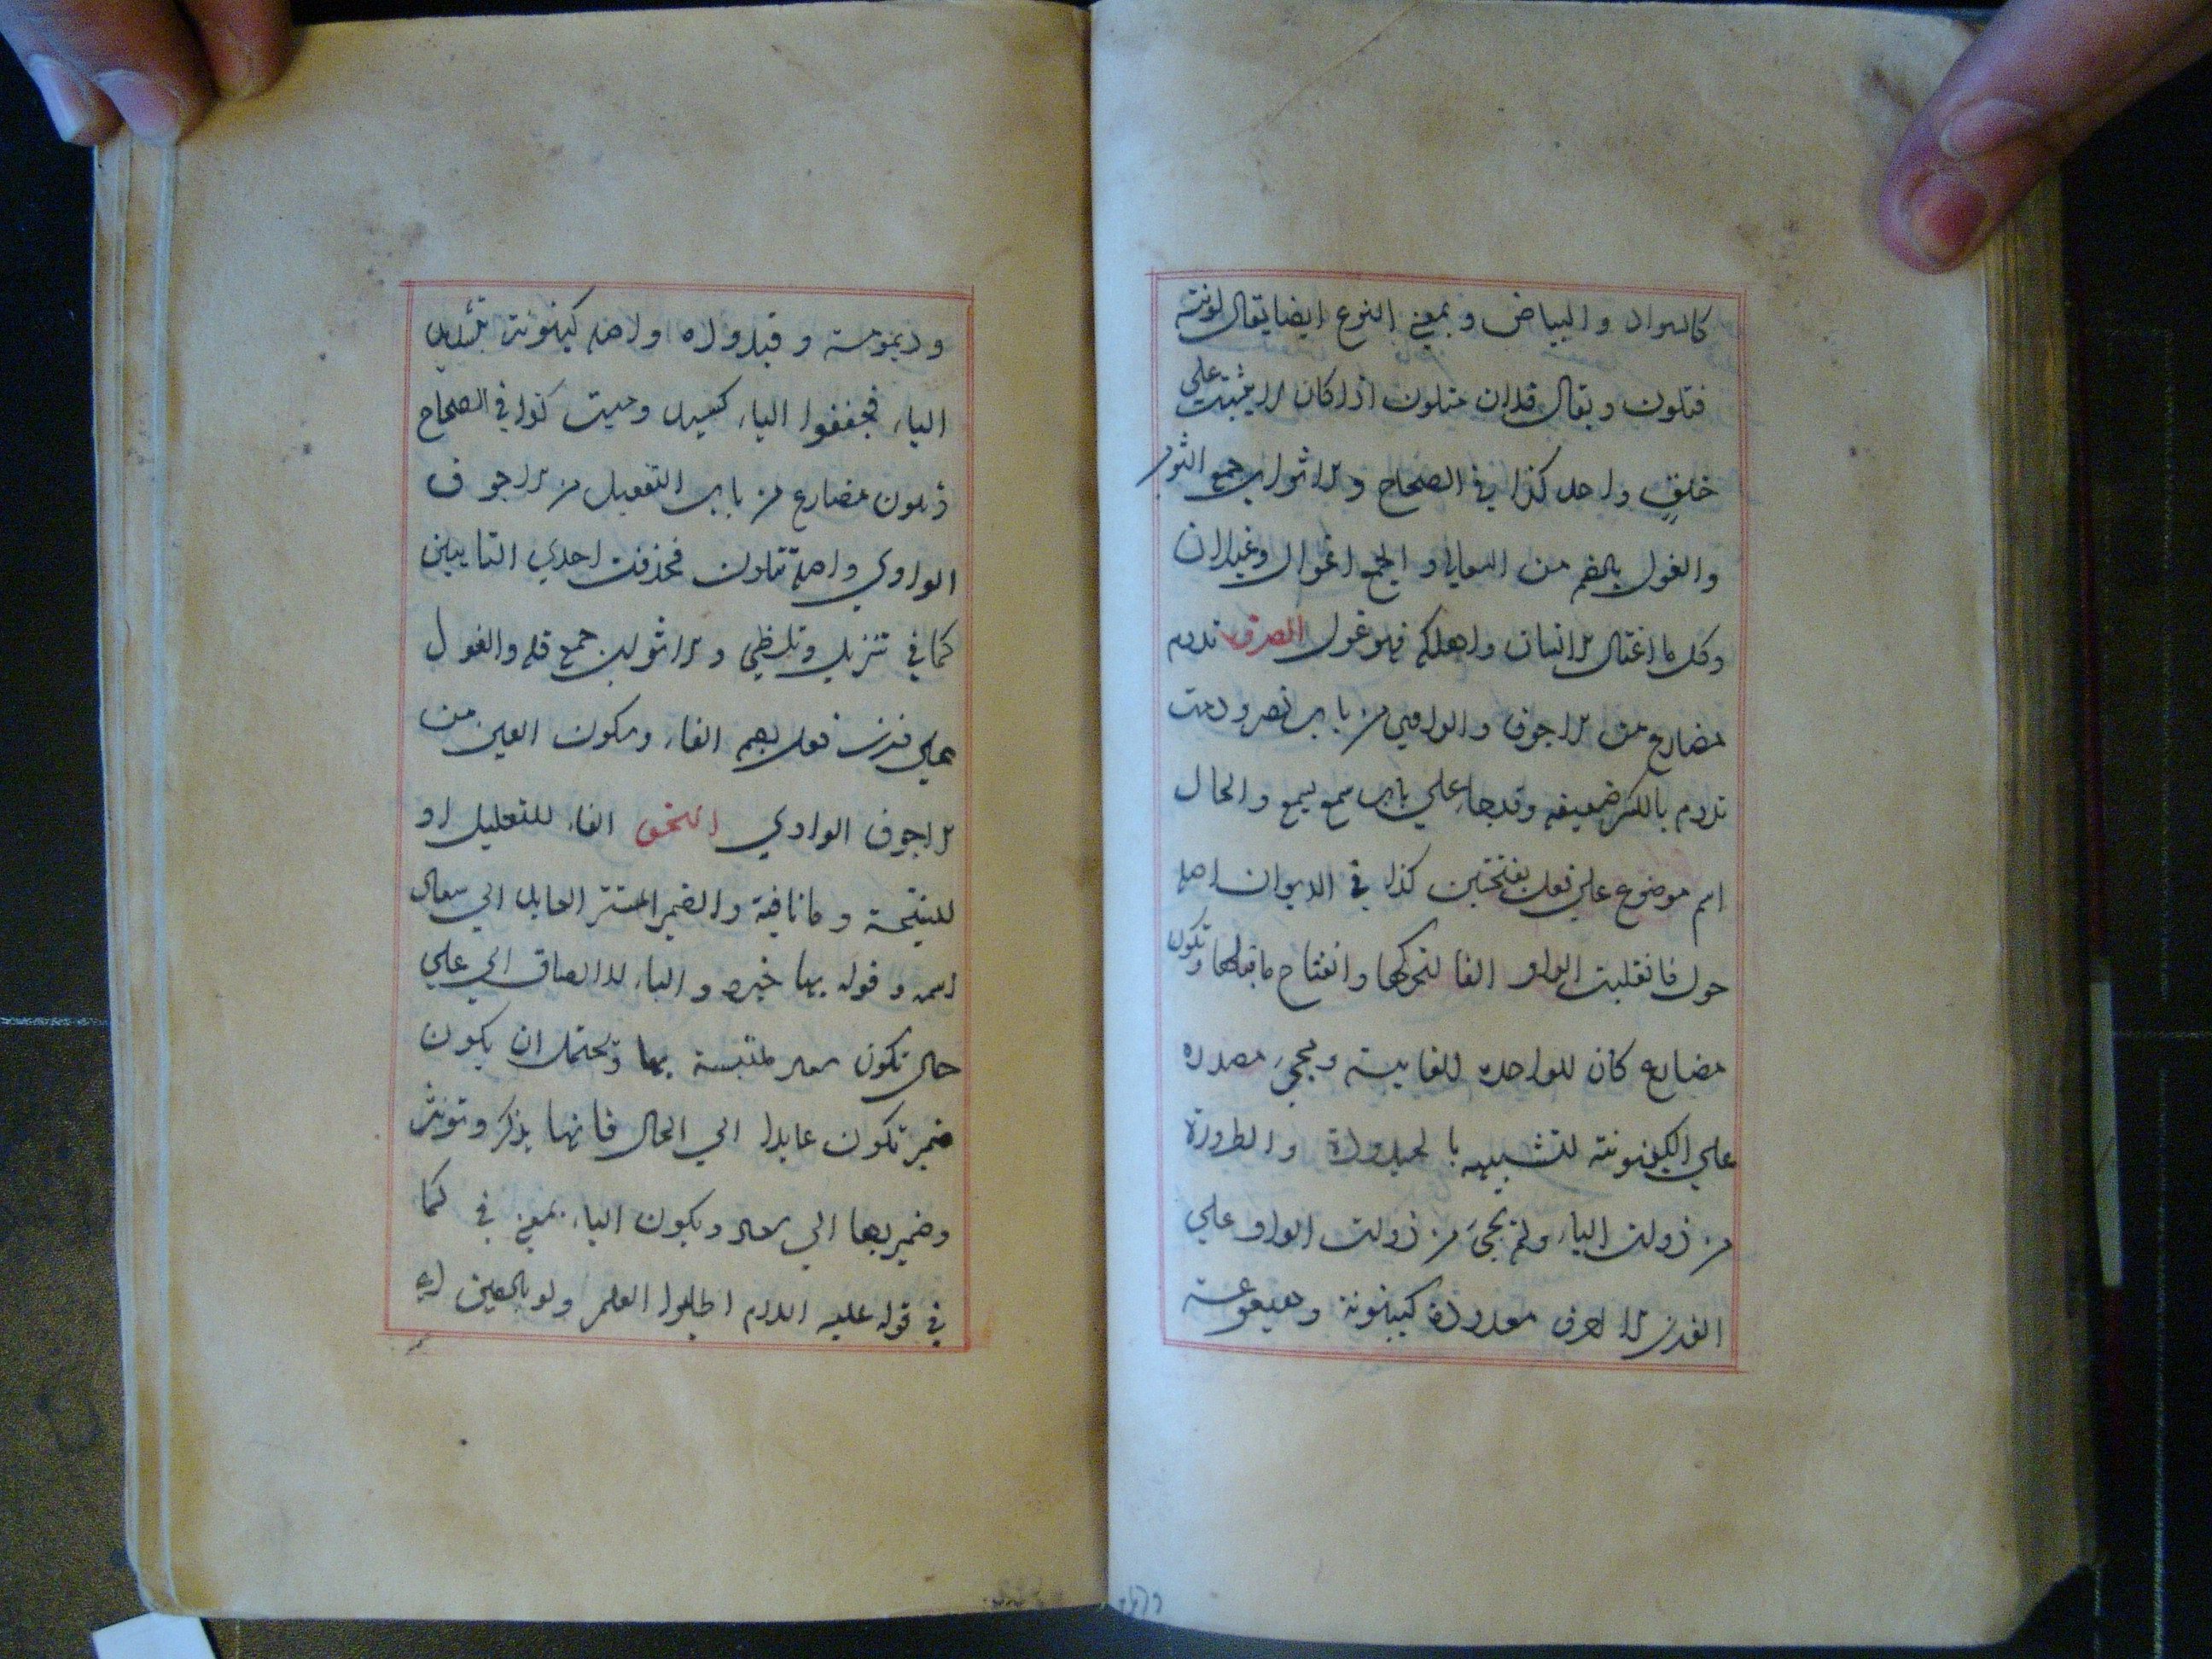 كالسواد والبياض وبمعنى النوع ايضا يقال لونته
فتلون ويقال فلان متلون اذا كان لا يثبت على
خلق واحد كذا في الصحاح والاثواب جمع الثوب
والغول بالضم من السعالي والجمع اغوال وغيلان
وكل ما اغتال الانسان واهلكه فهو غول الصرف تدوم
مضارع من الاجوف والواوي من باب نصر ودمت
تدوم بالكسر ضعيفه وقد جاء علي باب سمع يسمع والحال
اسم موضوع علي فعل بفتحتين كذا في الديوان اصله
حول فانقلبت الواو الفا لتحركها وانفتاح ما قبلها وتكون
مضارع كان للواحدة الغايبة ويجيء مصدره
علي الكينونة للتشبيه بالحيدودة والطيرورة
من ذوات الياء ولم يجيء من ذوات الواو علي
الا احرف معدودة كينونة وهيعوعة
وديمومة وقيدوده واصله كينونة بتشديد
الياء فخففوا الياء كهين وميت كذا في الصحاح
تلون مضارع من باب التفعيل من الاجوف
الواوي واصله تتلون فحذفت احدي التايين
كما في تنزيل وتلظي والاثواب جمع قلة والغول
علي وزن فعل بضم الفاء وسكون العين من
الاجوف الواوي النحو الفاء للتعليل او
للنتيجة وما نافية والضمير المستتر العايد الي سعاد
اسمه وقوله بها خبره والباء للالصاق اي علي
حال تكون سعاد ملتبسة بها ويحتمل ان يكون
ضمير تكون عايدا الي الحال فانها يذكر وتونث
وضمير بها الي سعاد ويكون الباء بمعني في كما
في قوله عليه السلام اطلبوا العلم ولو بالصين اي